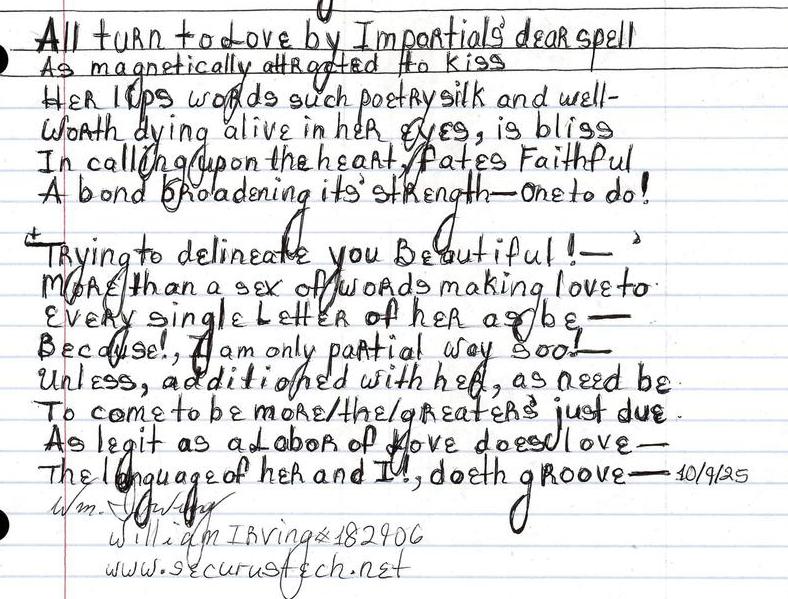 All turn to Love by Impartials' dear spell
As magnetically attracted to kiss
Her lips words such poetry silk and well-
Worth dying alive in her eyes, is bliss
In calling upon the heart, Fates Faithful
A bond broadening its' strength—one to do!
Trying to delineate you Beautiful!—
More than a sex of words making love to
Every single Letter of her as be—
Because!, I am only partial way soo!—
Unless, additioned with her, as need be
To come to be more/the/greaters' just due.
As legit as a Labor of Love does love—
The language of her and I!, doeth groove— 10/9/25
Wm. Irving
William Irving #182906
www.securustech.net